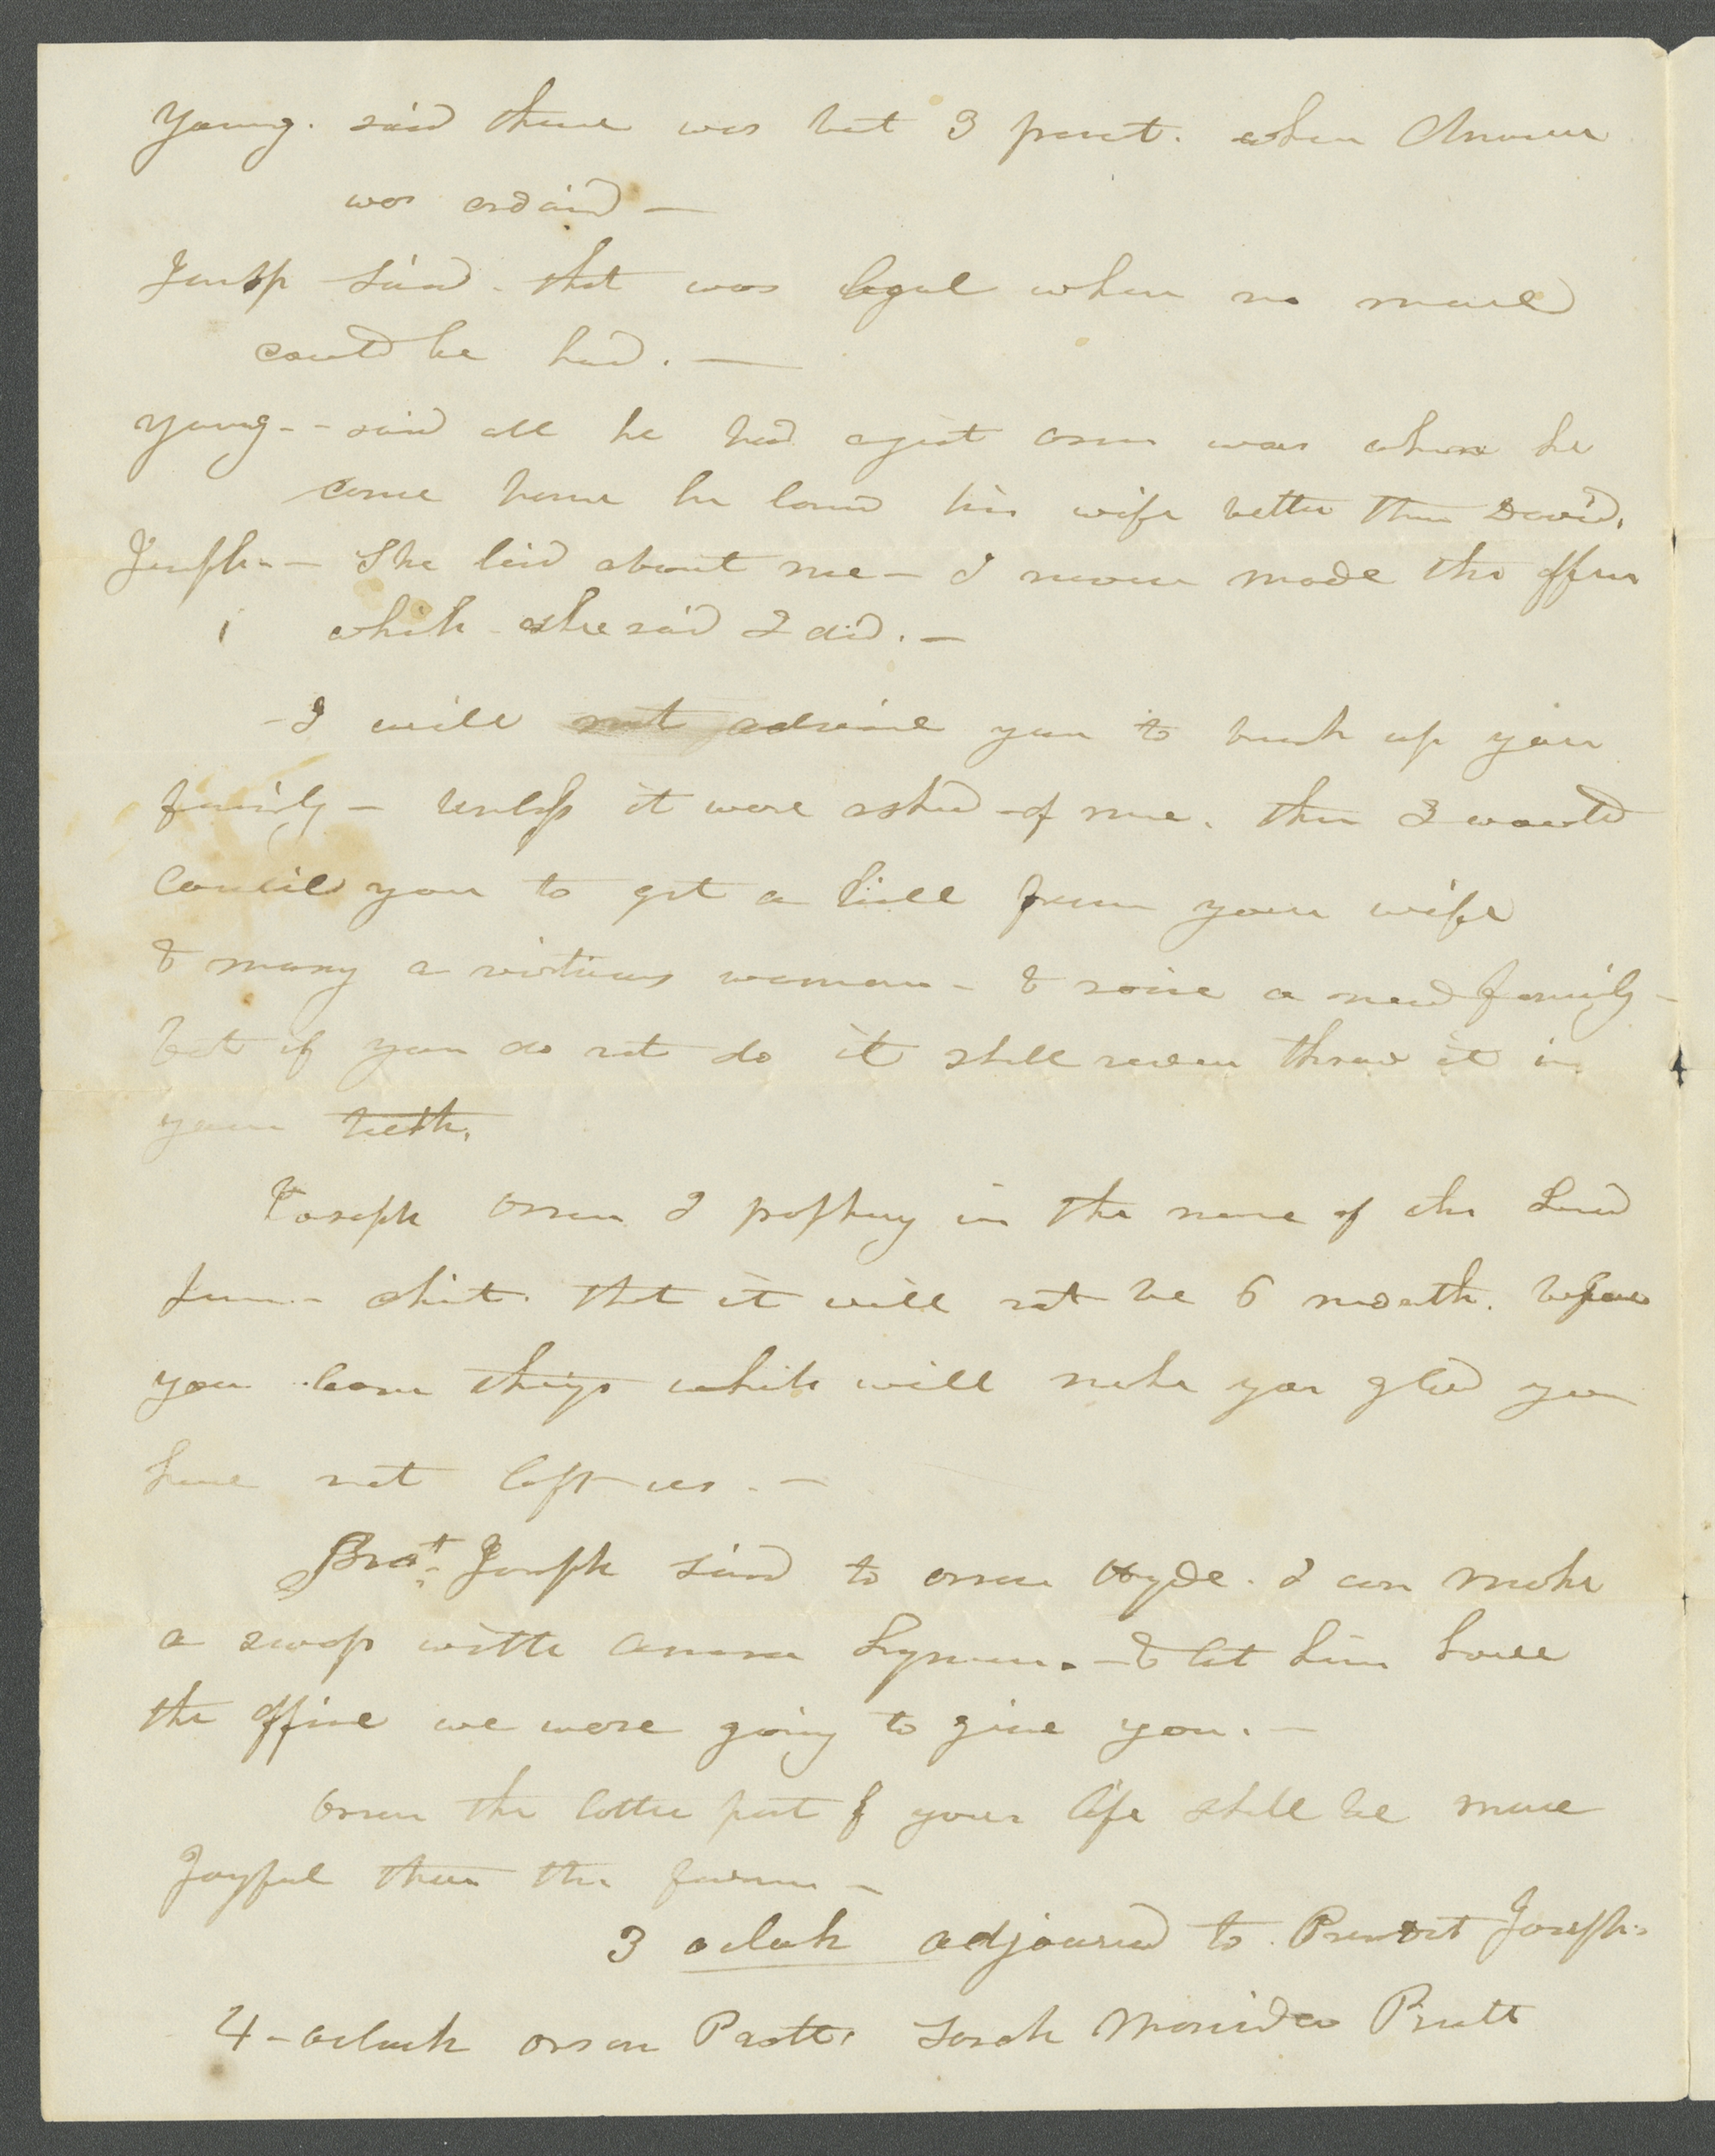 Young. said there was but 3 prest. when Amasa
was ordaind —
Joseph said. that was legal when no more
could be had. —
Young - - said all he had agist orson was when he
come home he loved his wife better than David.
Joseph - — She lied about me — I never made the offer
which she said I did. —
- I will not advise you to break up your
family — unless it were asked of me. then I would
council you to get a bill from your wife
& marry a virtuous woman — & raise a new family —
but if you do not do it shall never throw it in
your teeth.
Joseph Orson I prophesy in the name of the Lord
Jesus christ. that it will not be 6 month. before
you learn things which will make you glad you
have not left us. —
Brot. Joseph said to orson Hyde. I can make
a swap with amasa Lyman. — & let him have
the office we were going to give you. —
Orson the latter part of your life shall be more
Joyful than the former —
3 oclock adjourned to Presedet Josephs
4 - oclock orson Pratt. Sarah Marinda Pratt